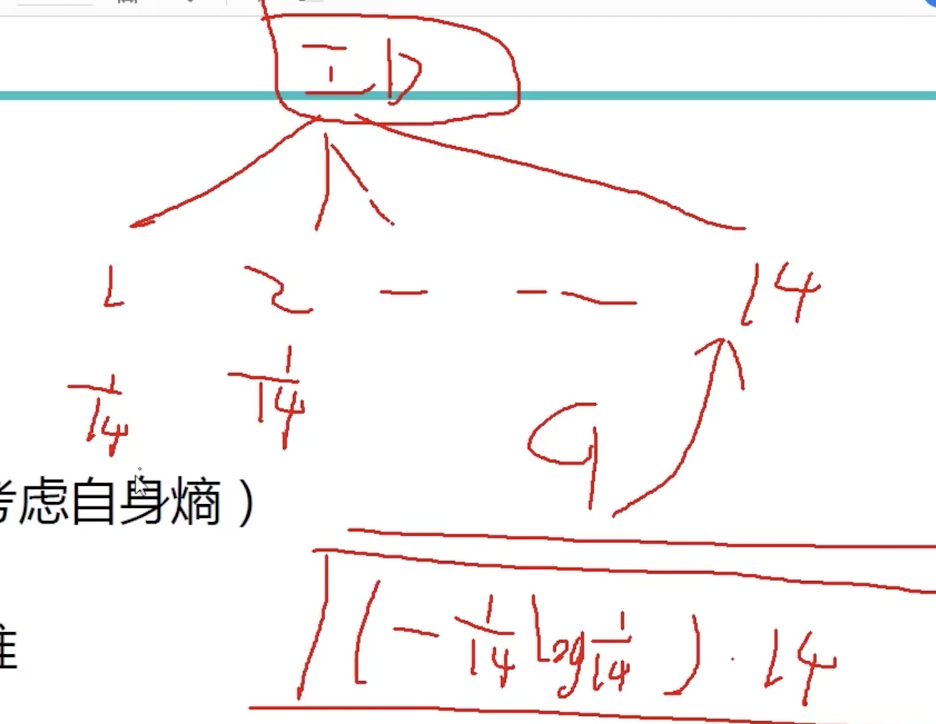 ID
1 2 — — — 14
1/14 1/14
G
考虑自身熵）
(- 1/14 log 1/14) · 14